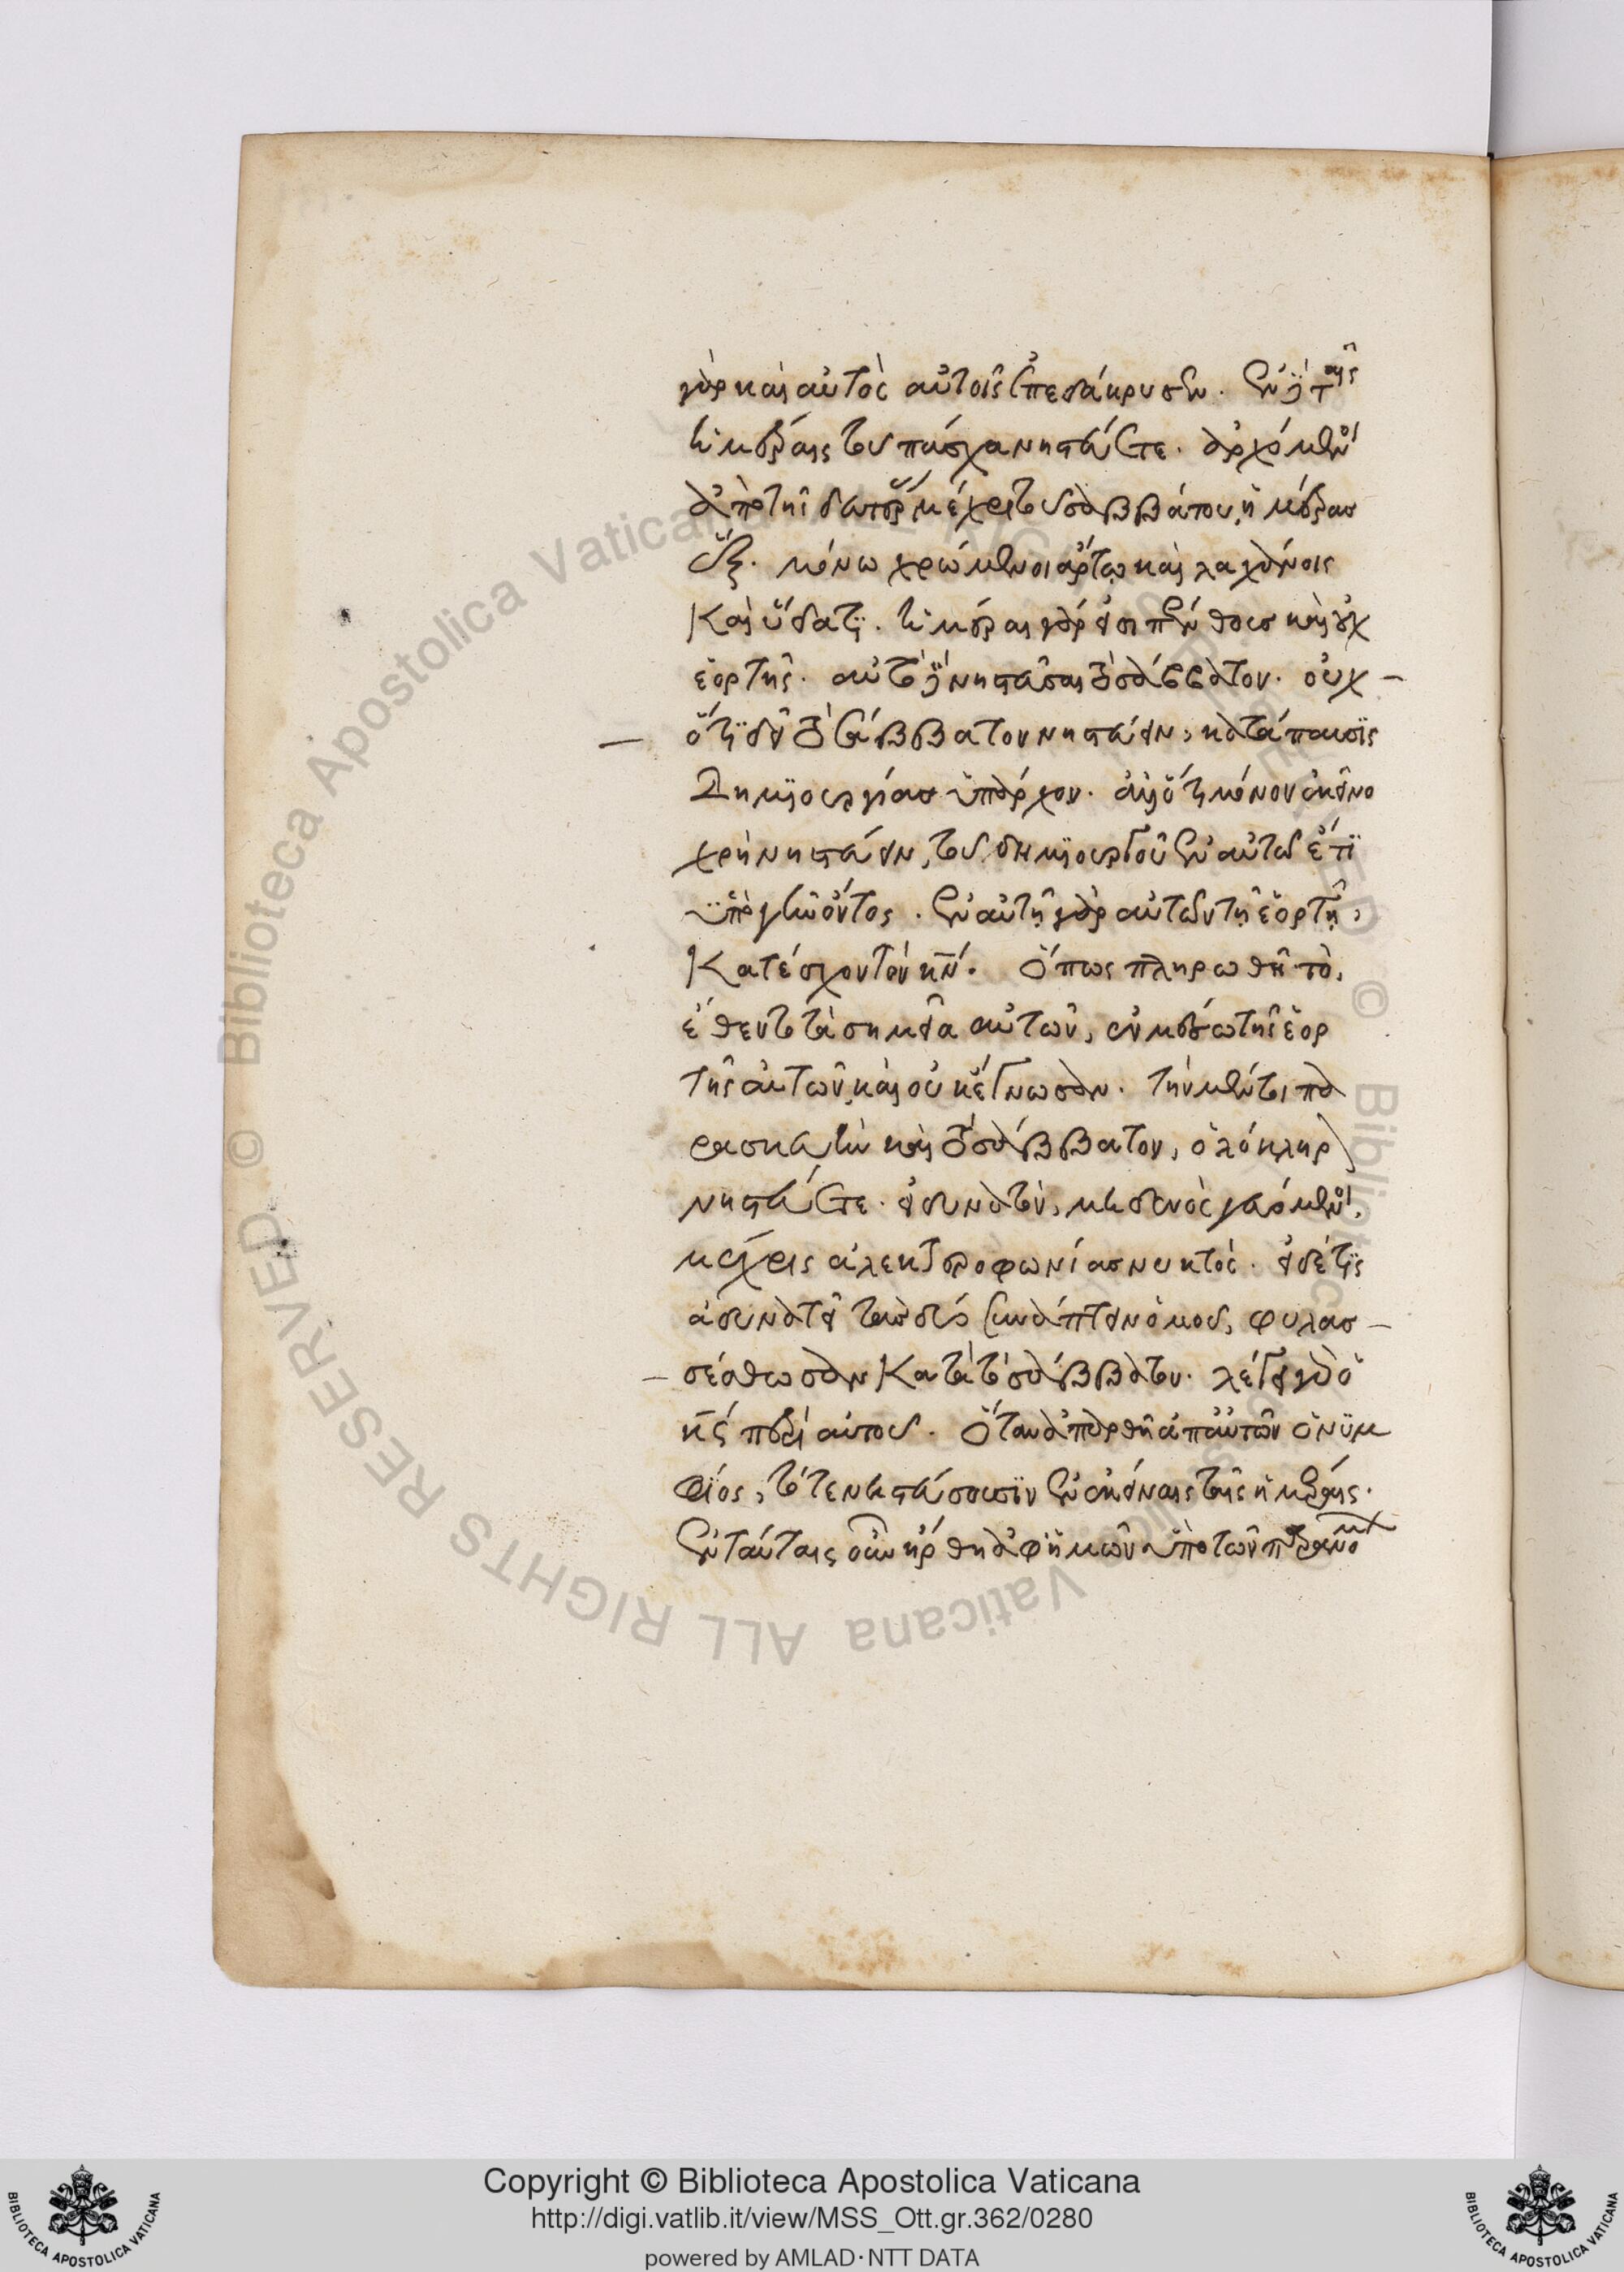 γὰρ καὶ αὐτὸς αὐτοῖς ἐπεδάκρυσεν. ἐν δὲ ταῖς
ἡμέραις τοῦ πάσχα νηστεύετε. ἀρχόμενοι
ἀπὸ τῆς δευτέρας μέχρι τοῦ σαββάτου, ἡμέρας
ἕξ. μόνω χρώμενοι ἄρτῳ καὶ λαχάνοις
καὶ ὕδατι. ἡμέραι γάρ εἰσι πένθους καὶ οὐχ
ἑορτῆς. αὐτὸ δὲ νηστεῦσαι τὸ σάββατον. οὐχ
ὅτι δεῖ τὸ σάββατον νηστεύειν, κατάπαυσις
δημιουργίας ὑπάρχον. ἀλλ' ὅτι μόνον ἐκεῖνο
χρὴ νηστεύειν, τοῦ δημιουργοῦ ἐν αὐτῶ ἔτι
ὑπὸ γῆν ὄντος. ἐν αὐτῇ γὰρ αὐτῶν τῇ ἑορτῇ,
κατέσχον τὸν κν. ὅπως πληρωθῆ τὸ,
ἔθεντο τὰ σημεῖα αὐτῶν, ἐν μέσω τῆς ἑορ
τῆς αὐτῶν, καὶ οὐκ ἔγνωσαν. τὴν μέντοι πα
ρασκευὴν καὶ τὸ σάββατον, ὁλόκληρον
νηστεύετε. εἰ δυνατὸν, μηδενὸς γευόμενοι
μέχρις ἀλεκτροφωνίας νυκτός. εἰ δέ τις
ἀδυνατεῖ τὰς δύο συνάπτειν ὁμοῦ, φυλασ
σέσθωσαν κατὰ τὸ σάββατον. λέγει γὰρ ὁ
κς περὶ αὐτοῦ. ὅταν ἀπαρθῆ ἀπ' αὐτῶν ὁ νυμ
φίος, τότε νηστεύσουσιν ἐν ἐκείναις ταῖς ἡμέραις.
ἐν ταύταις οὖν ἤρθη ἀφ' ἡμῶν ὑπὸ τῶν
Copyright © Biblioteca Apostolica Vaticana
http://digi.vatlib.it/view/MSS_Ott.gr.362/0280
powered by AMLAD·NTT DATA